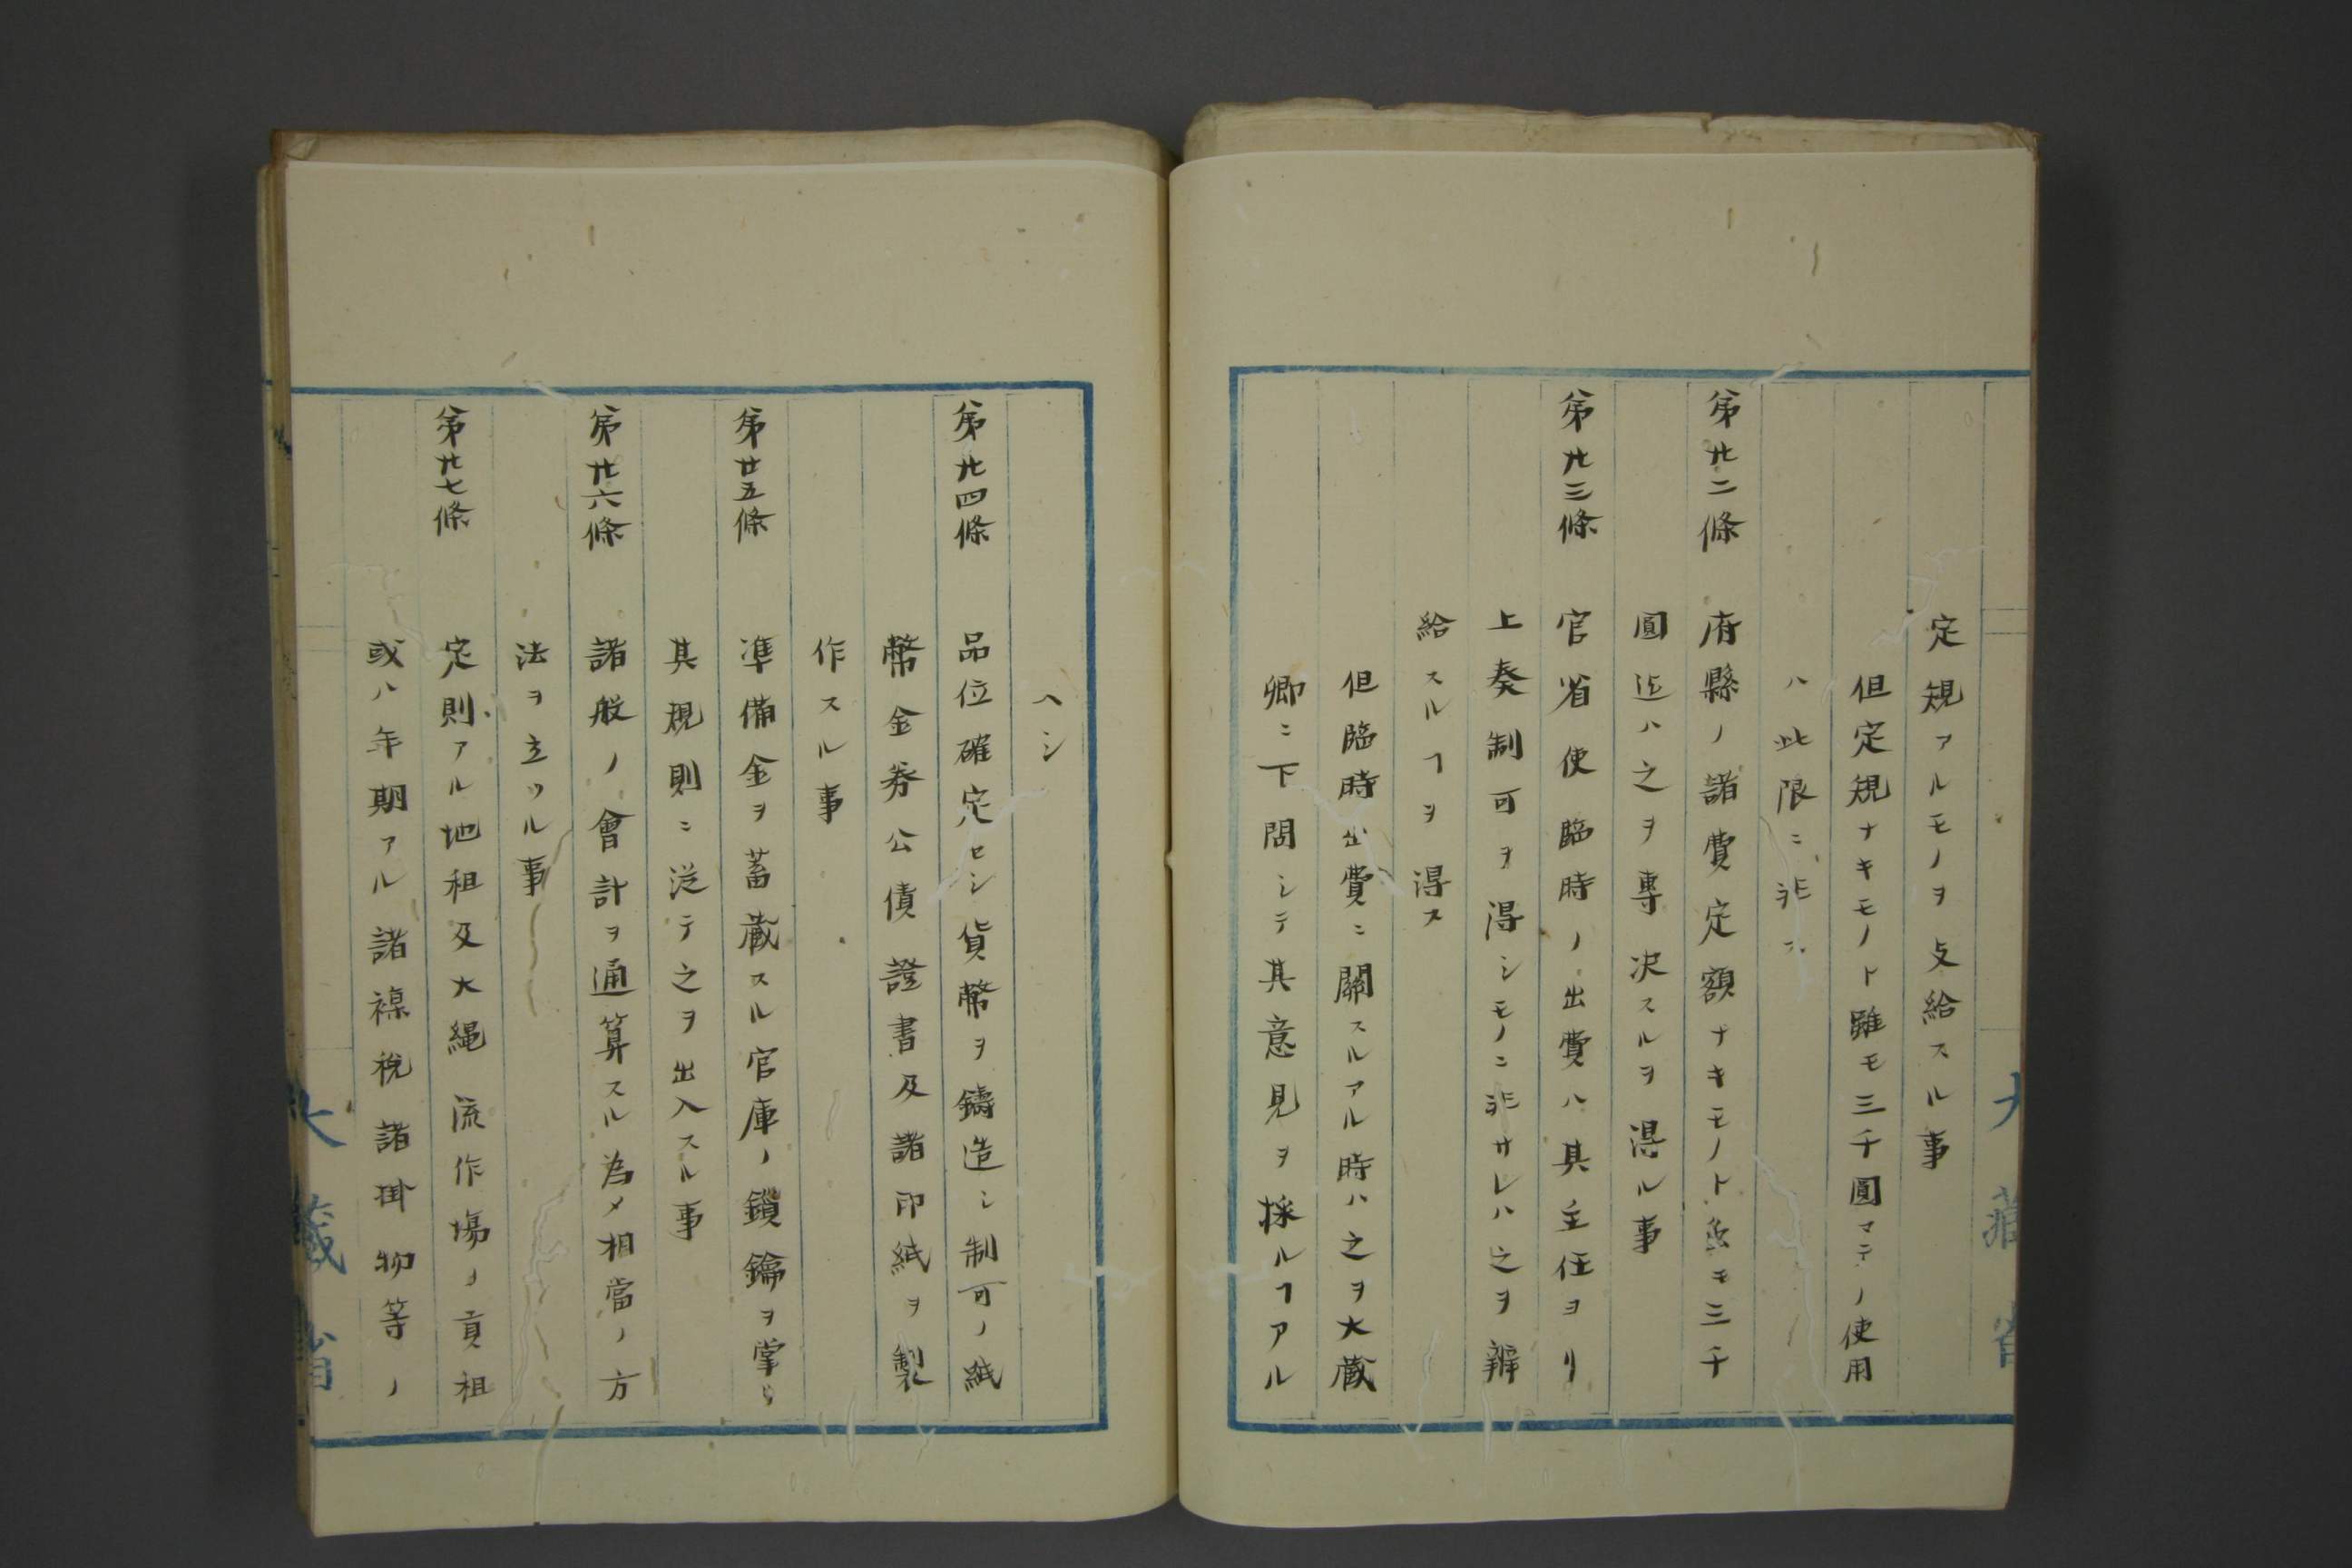 定規アルモノヲ支給スル事
但定規ナキモノト雖モ三千圓マテノ使用
ハ此限ニ非ス
第廿二條 府縣ノ諸費定額ナキモノト雖モ三千
圓迄ハ之ヲ專決スルヲ得ル事
第廿三條 官省使臨時ノ出費ハ其主任ヨリ
上奏制可ヲ得シモノニ非サレハ之ヲ辨
給スルヿヲ得ス
但臨時出費ニ關スルアル時ハ之ヲ大蔵
卿ニ下問シテ其意見ヲ採ルヿアル
ヘシ
第廿四條 品位確定セシ貨幣ヲ鑄造シ制可ノ紙
幣金券公債證書及諸印紙ヲ製
作スル事
第廿五條 準備金ヲ蓄蔵スル官庫ノ鎖鑰ヲ掌リ
其規則ニ從テ之ヲ出入スル事
第廿六條 諸般ノ會計ヲ通算スル為メ相當ノ方
法ヲ立ツル事
第廿七條 定則アル地租及大縄流作場ノ貢租
或ハ年期アル諸襍税諸掛物等ノ
大藏省